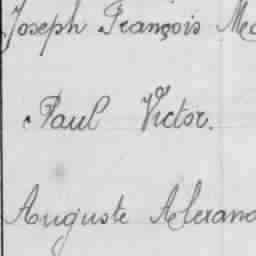 Joseph François Med
Paul Victor.
Auguste Alexand